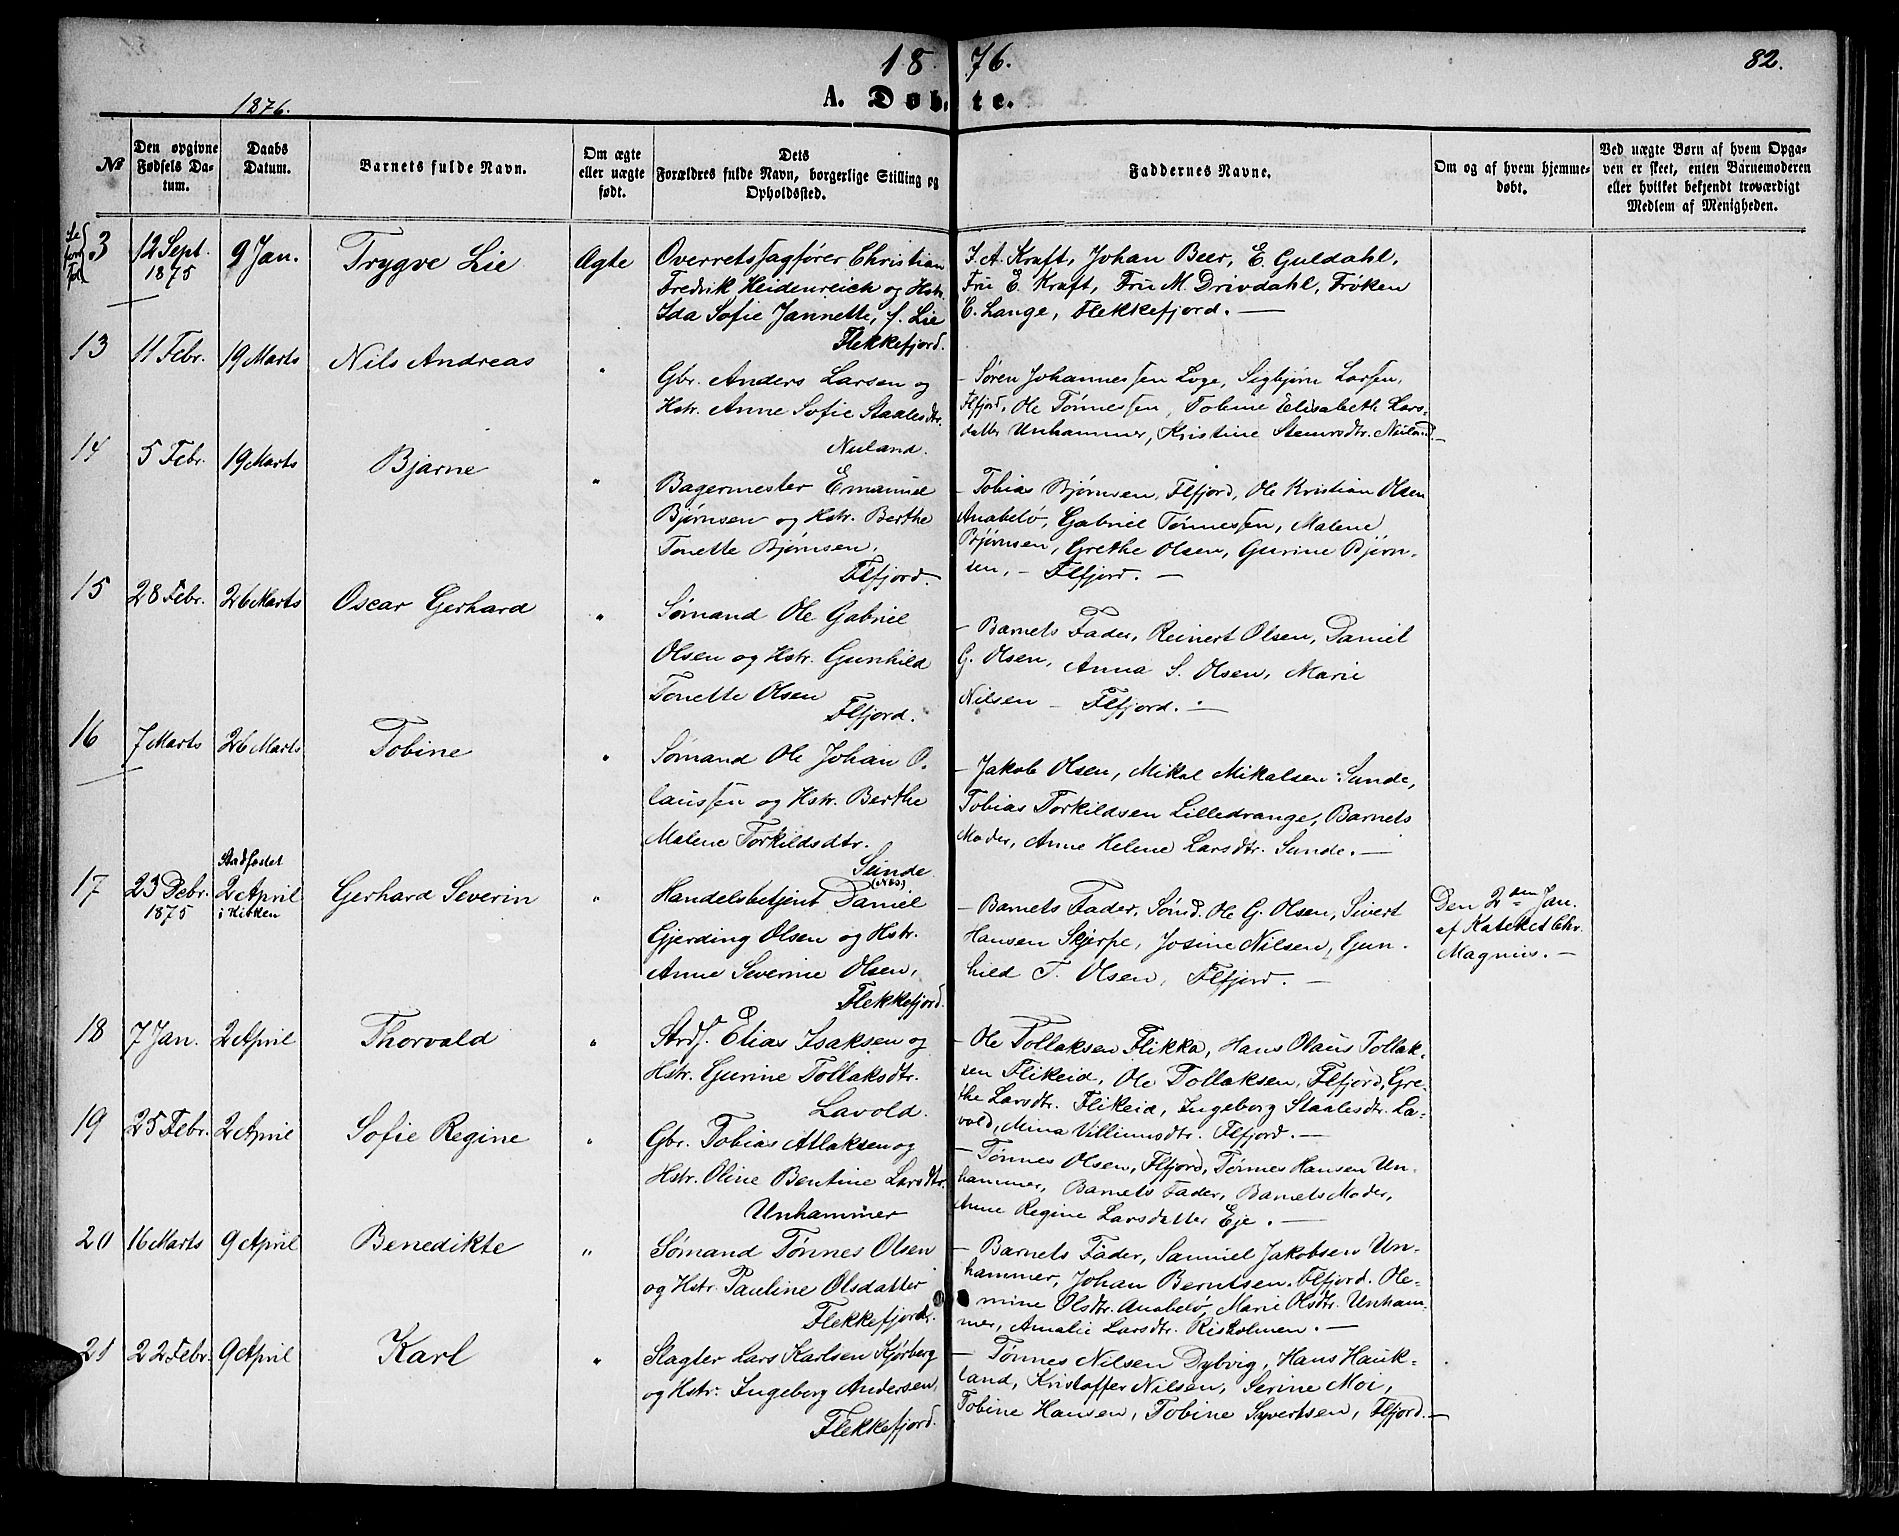 18 76.
82.
1876.
A. Døb te.
No
Den opgivne Fødsels Datum.
Daabs Datum.
Barnets fulde Navn.
Om ægte eller uægte født.
Dets Forældres fulde Navn, borgerlige Stilling og Opholdssted.
Faddernes Navne.
Om og af hvem hjemmedøbt.
Ved uægte Børn af hvem Opgaven er skeet, enten Barnemoderen eller hvilket bekjendt troværdigt Medlem af Menigheden.
3
12 Sept. 1875
9 Jan.
Trygve Lie
Ægte
Overretssagfører Christian
Fredrik Heidenreich og Hstr.
Ida Sofie Jannette, f. Lie
Flekkefjord.
J. A. Kraft, Johan Beer, E. Guldahl,
Fru E. Kraft, Fru M. Drivdahl, Frøken
E. Lange, Flekkefjord. —
13
11 Febr.
19 Marts
Nils Andreas
"
Gbr. Anders Larsen og
Hstr. Anne Sofie Staalesdtr.
Nuland.
— Søren Johannessen Loge, Sigbjørn Larsen,
Flfjord, Ole Tønnessen, Tobine Elisabeth Lars-
datter Unhammer, Kristine Stenersdtr. Nuland. —
14
5 Febr.
19 Marts
Bjarne
"
Bagermester Emanuel
Bjørnsen og Hstr. Berthe
Tonette Bjørnsen,
Flfjord.
— Tobias Bjørnsen, Flfjord, Ole Kristian Olsen
Anabelø, Gabriel Tønnessen, Malene
Bjørnsen, Grethe Olsen, Gurine Bjørn-
sen, — Flfjord. —
15
28 Febr.
26 Marts
Oscar Gerhard
"
Sømand Ole Gabriel
Olsen og Hstr. Gunhild
Tonette Olsen
Flfjord.
— Barnets Fader, Reinert Olsen, Daniel
G. Olsen, Anna S. Olsen, Marie
Nilsen — Flfjord. —
16
7 Marts
26 Marts
Tobine
"
Sømand Ole Johan O-
laussen og Hstr. Berthe
Malene Torkildsdtr.
Sunde
— Jakob Olsen, Mikal Mikalsen Sunde,
Tobias Torkildsen Lilledrange, Barnets
Moder, Anne Helene Larsdtr. Sunde. —
17
23 Debr. 1875
Stadfæstet
2 April
i Kirken
Gerhard Severin
"
Handelsbetjent Daniel
Gjerding Olsen og Hstr.
Anne Severine Olsen,
Flekkefjord.
— Barnets Fader, Sømd. Ole G. Olsen, Sivert
Hansen Skjerpe, Josine Nilsen, Gun-
hild T. Olsen, Flfjord. —
Den 2den Jan.
af Kateket Chr.
Magnus. —
18
7 Jan.
2 April
Thorvald
"
Strdf. Elias Isaksen og
Hstr. Gurine Tollaksdtr.
Lavold.
— Ole Tollaksen Flikka, Hans Olaus Tollak-
sen Flikeid, Ole Tollaksen, Flfjord, Gre-
the Larsdtr. Flikeid, Ingeborg Staalesdtr. La-
vold, Mina Villumsdtr. Flfjord. —
19
25 Febr.
2 April
Sofie Regine
"
Gbr. Tobias Atlaksen og
Hstr. Oline Bentine Larsdtr.
Unhammer
— Tønnes Olsen, Flfjord, Tønnes Hansen Un-
hammer, Barnets Fader, Barnets Moder,
Anne Regine Larsdatter Eje. —
20
16 Marts
9 April
Benedikte
"
Sømand Tønnes Olsen
og Hstr. Pauline Olsdatter
Flekkefjord.
— Barnets Fader, Samuel Jakobsen Un-
hammer, Johan Berntsen, Flfjord. Ole-
mine Olsdtr. Anabelø, Marie Olsdtr. Unham-
mer, Amalie Larsdtr. Risholmen. —
21
22 Febr.
9 April
Karl
"
Slagter Lars Karlsen Kjørberg
og Hstr. Ingeborg Andersen,
Flekkefjord.
— Tønnes Nilsen Dybvig, Hans Hauk-
land, Kristoffer Nilsen, Serine Moi,
Tobine Hansen, Tobine Syvertsen, Flfjord. —